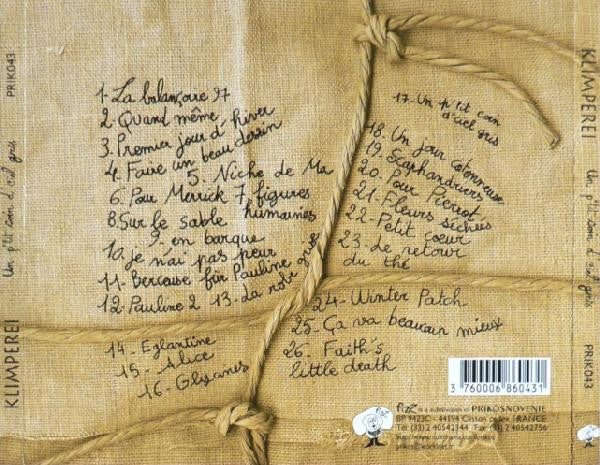 KLIMPEREI Un p'tit coin d'ciel gris PRIK043
1- La balançoire 97
2- Quand même,
3. Premier jour d'hiver
4- Faire un beau dessin
5. Niche de Ma
6- Pour Merrick 7 figures
8. Sur le sable humanies
9. en barque
10. je n'ai pas peur
11- Berceuse für Pauline
12. Pauline 2 13. La robe grise
14- Eglantine
15- Alice
16- Glycines
17- Un p'tit coin
d'ciel gris
18- Un jour cotonneuse
19. Scaphandriers
20. Pour Pierrot,
21- Fleurs séchées
22- Petit coeur
23- Le retour
du thé
24- Winter Patch
25- Ça va beaucoup mieux
26- Faith's
little death
3 760006 860431
fizz is a subdivision of PRIKOSNOVENIE
FRANCE
Tél (33) 2 40542344 Fax (33) 2 40542756
KLIMPEREI Un p'tit coin d'ciel gris PRIK043